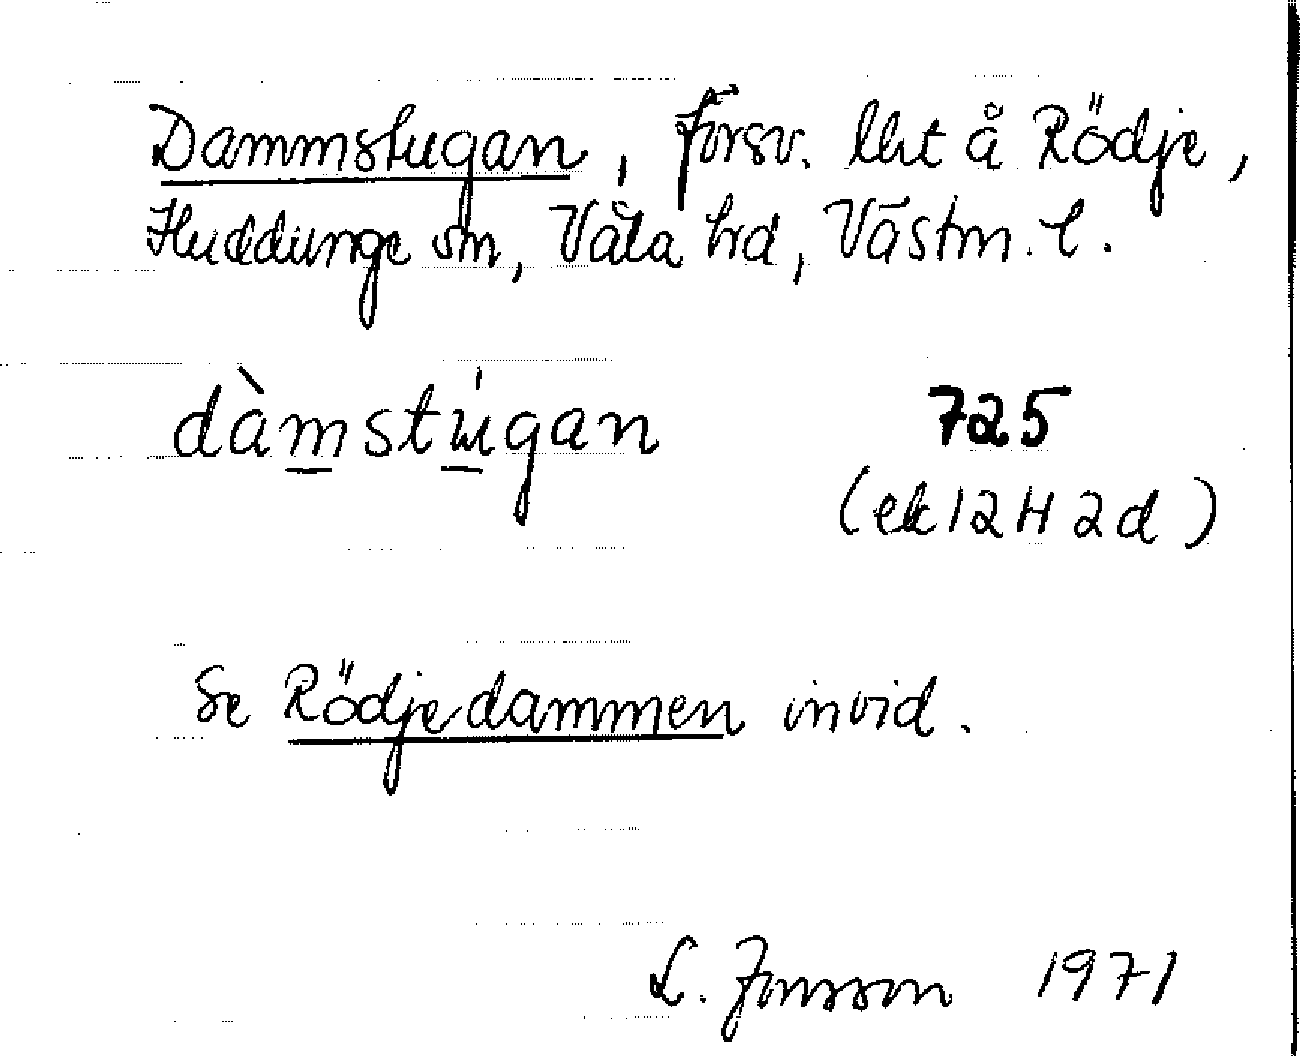 Dammstugan, försv. lht å Rödje,
Huddunge sn, Våla hd, Västm. l.
dàmstu̇gan 725
(ek 12 H 2 d)
Se Rödjedammen invid.
L. Jonsson 1971